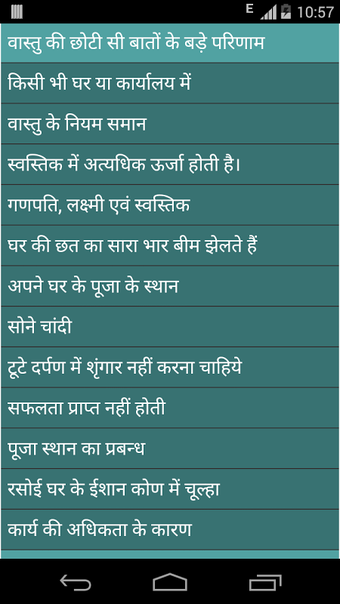 E 10:57
वास्तु की छोटी सी बातों के बड़े परिणाम
किसी भी घर या कार्यालय में
वास्तु के नियम समान
स्वस्तिक में अत्यधिक ऊर्जा होती है।
गणपति, लक्ष्मी एवं स्वस्तिक
घर की छत का सारा भार बीम झेलते हैं
अपने घर के पूजा के स्थान
सोने चांदी
टूटे दर्पण में शृंगार नहीं करना चाहिये
सफलता प्राप्त नहीं होती
पूजा स्थान का प्रबन्ध
रसोई घर के ईशान कोण में चूल्हा
कार्य की अधिकता के कारण